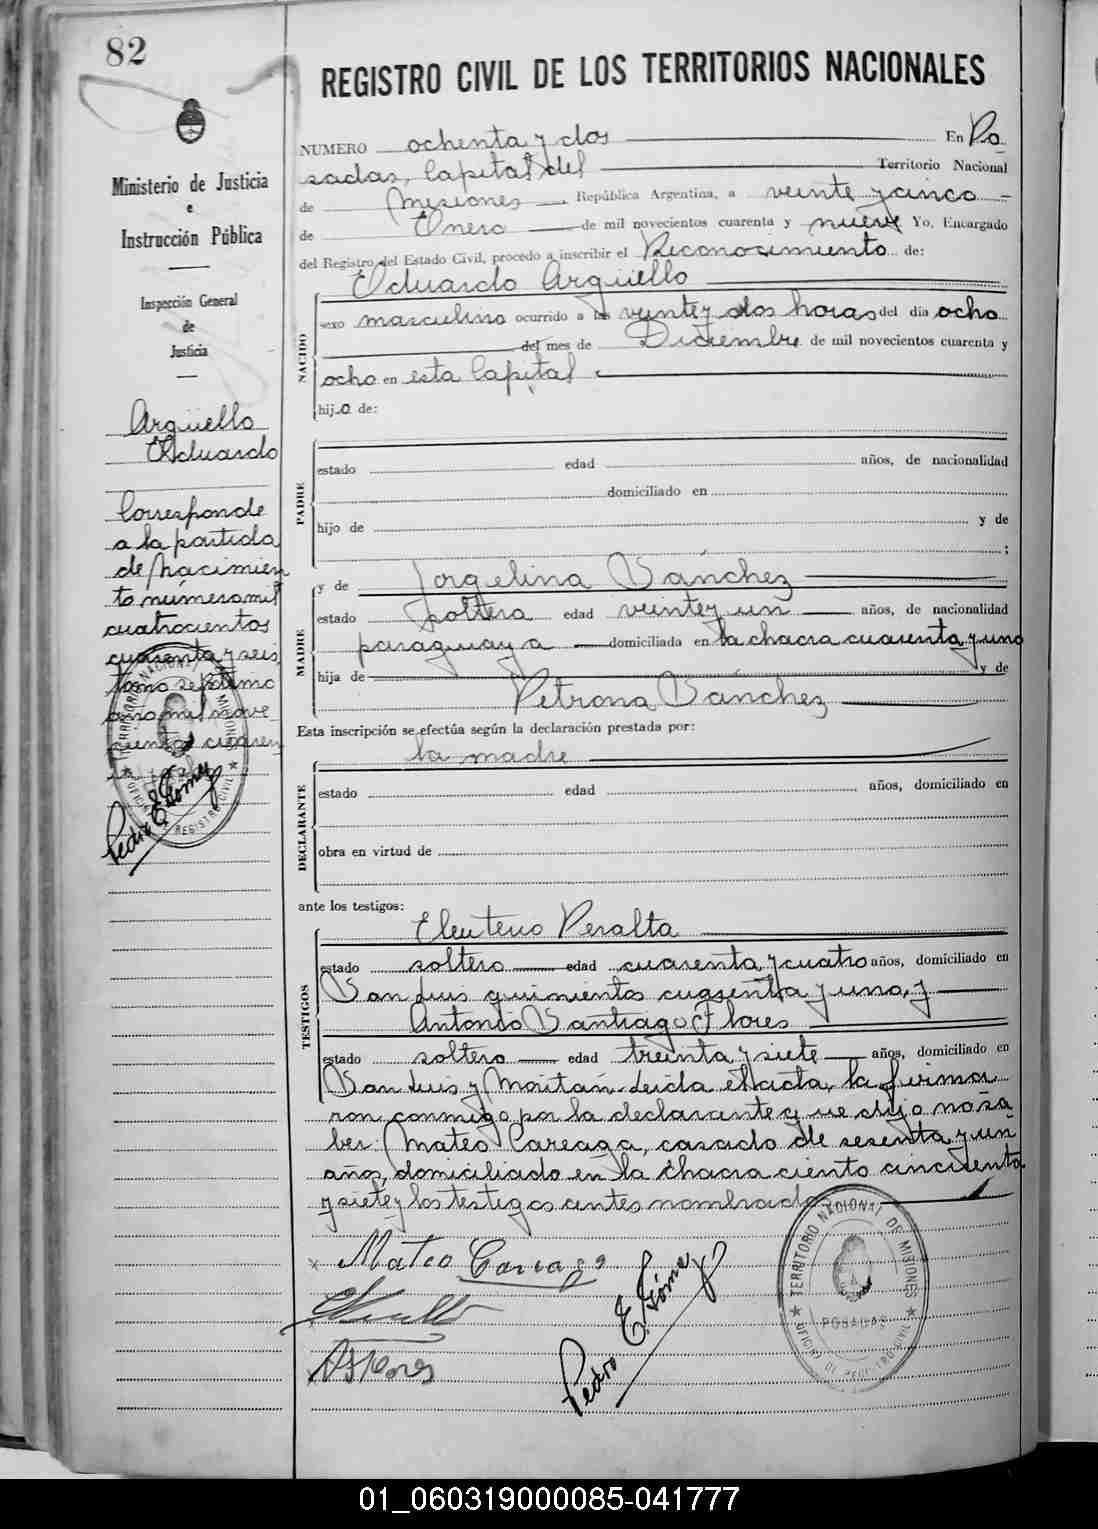 82
REGISTRO CIVIL DE LOS TERRITORIOS NACIONALES
Ministerio de Justicia
e
Instrucción Pública
Inspección General
de
Justicia
Argüello
Eduardo
Corresponde
a la partida
de Nacimien
to número mil
cuatrocientos
cuarenta y seis
tomo septimo
año mil nove
cientos cuaren
Pedro E. Gómez
NUMERO ochenta y dos En Po
sadas, Capital del Territorio Nacional
de Misiones República Argentina, a veinte y cinco
de Enero de mil novecientos cuarenta y nueve Yo, Encargado
del Registro del Estado Civil, procedo a inscribir el Reconocimiento de:
Eduardo Argüello
NACIDO
sexo masculino ocurrido a las veinte y dos horas del día ocho
del mes de Diciembre de mil novecientos cuarenta y
ocho en esta Capital
hijo de:
PADRE
estado edad años, de nacionalidad
domiciliado en
hijo de y de
;
y de Jorgelina Sánchez
MADRE
estado soltera edad veinte y un años, de nacionalidad
paraguaya domiciliada en la chacra cuarenta y uno
hija de y de
Petrona Sánchez
Esta inscripción se efectúa según la declaración prestada por:
la madre
DECLARANTE
estado edad años, domiciliado en
obra en virtud de
ante los testigos:
Eleuterio Peralta
TESTIGOS
estado soltero edad cuarenta y cuatro años, domiciliado en
San Luis quinientos cuarenta y uno, y
Antonio Santiago Flores
estado soltero edad treinta y siete años, domiciliado en
San Luis y Maitán. Leída el acta, la firma
ron conmigo por la declarante que dijo no sa
ber: Mateo Careaga, casado de sesenta y un
años, domiciliado en la chacra ciento cincuenta
y siete y los testigos antes nombrados
Mateo Careaga
ASFlores
Pedro E. Gómez
TERRITORIO NACIONAL DE MISIONES
POSADAS
OFICINA DE REGISTRO CIVIL
01_060319000085-041777